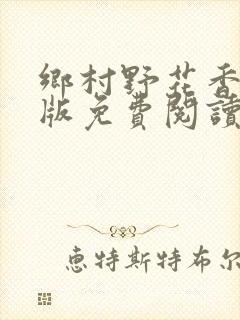 鄉村野花香
版免費閱讀
惠特斯特布尔